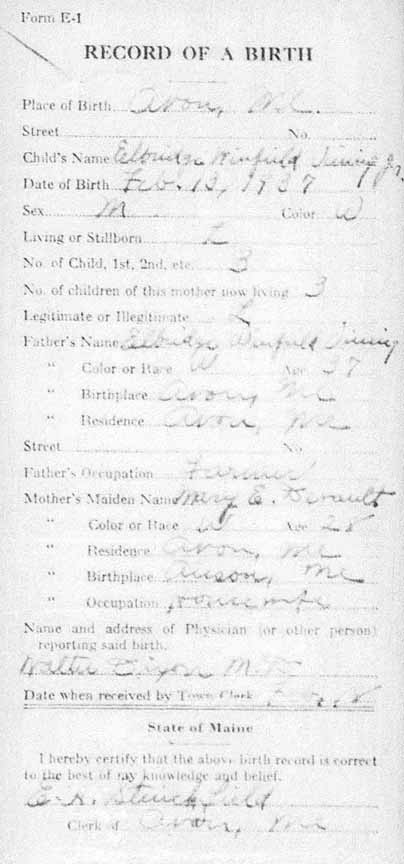 Form E-1
RECORD OF A BIRTH
Place of Birth Avon, Me.
Street No.
Child's Name Elbridge Winfield Jr.
Date of Birth Feb. 13, 1937
Sex M Color W
Living or Stillborn L
No. of Child, 1st, 2nd, etc. 3
No. of children of this mother now living 3
Legitimate or Illegitimate L
Father's Name Elbridge Winfield
" Color or Race W Age 37
" Birthplace Avon, Me
" Residence Avon, Me
Street No.
Father's Occupation Farmer
Mother's Maiden Name Mary E.
" Color or Race W Age 28
" Residence Avon, Me
" Birthplace Anson, Me
" Occupation Housewife
Name and address of Physician (or other person)
reporting said birth.
Dixon M.D.
Date when received by Town Clerk
State of Maine
I hereby certify that the above birth record is correct
to the best of my knowledge and belief.
E. H. Stinchfield
Clerk of Avon, Me